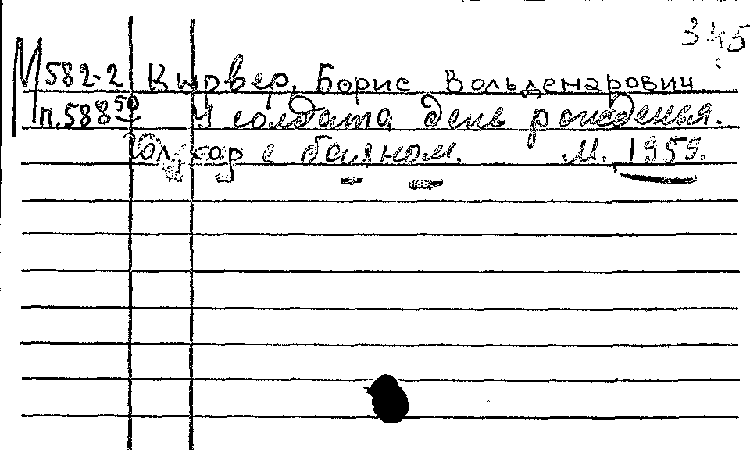 345
М582-2 Кырвер, Борис Вольдемарович
п.588⁵⁰ У солдата день рождения.
хор с баяном. М. 1959.